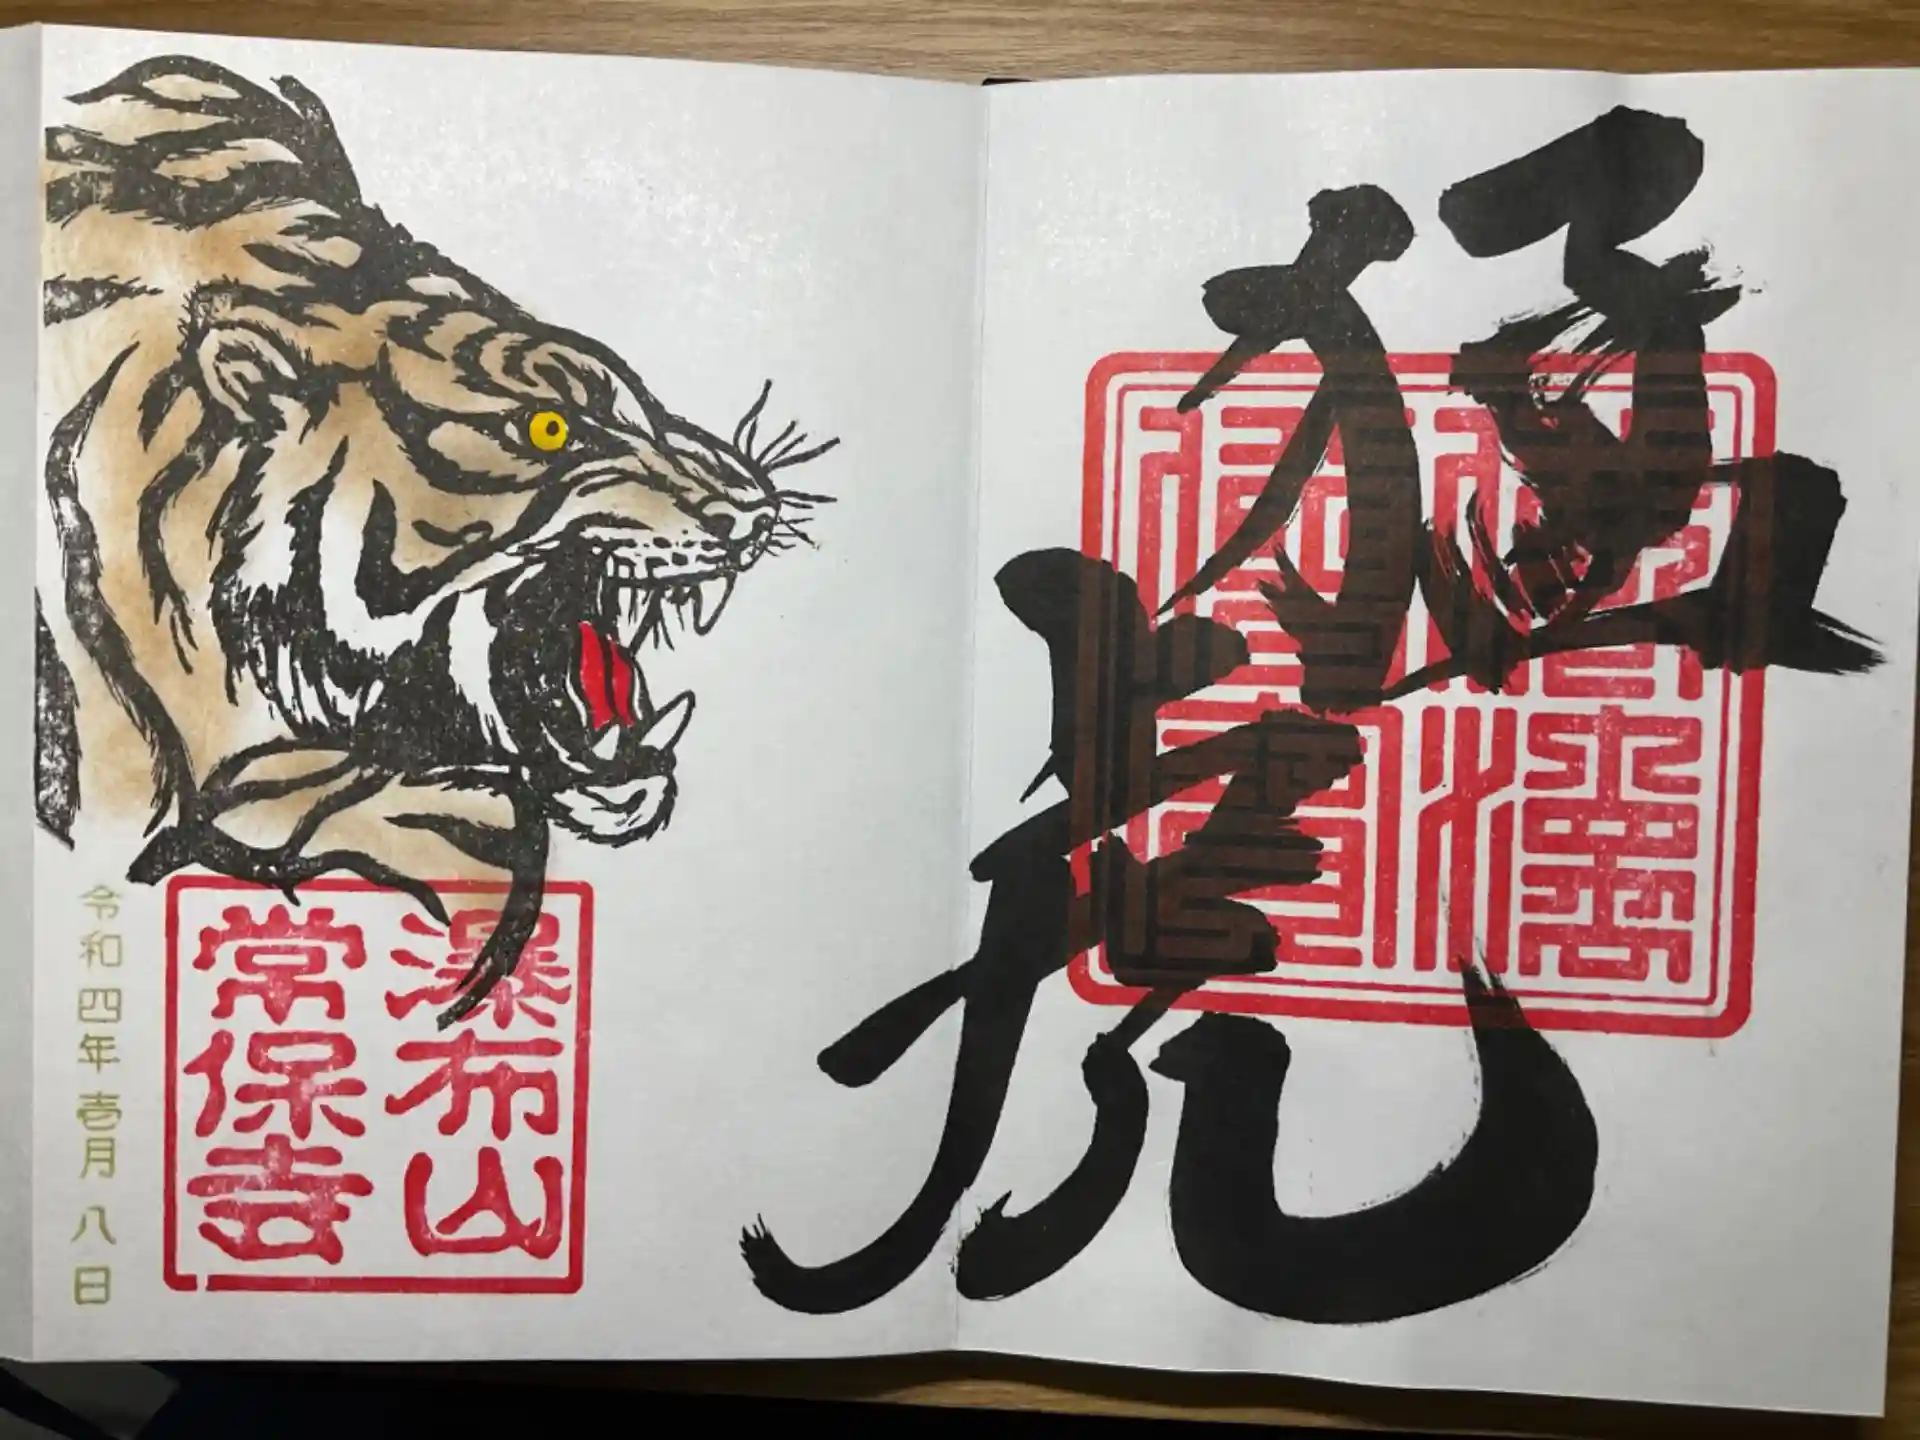 福虎
瀑布山
常保寺
令和四年壱月八日